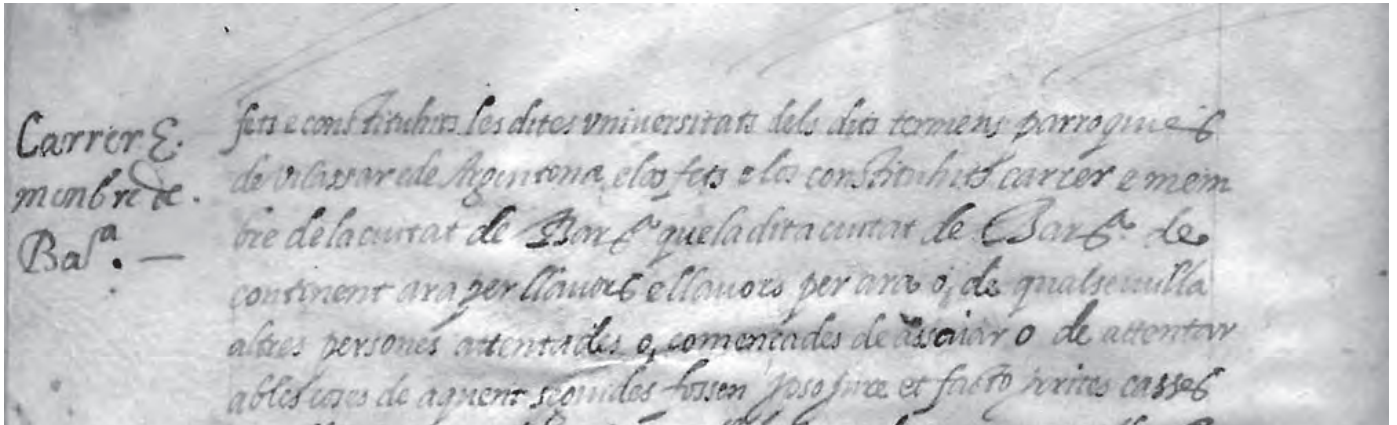 Carrer E.
menbre de.
Bar.ª —
fets e constituhits les dites universitats dels dits termens parroquies
de vilassar e de Argentona, e los fets e los constituhits carrer e mem
bre de la ciutat de Barª. que la dita ciutat de Barª. de
continent ara per llavors e llavors per ara o, de qualsevulla
altres persones attentades o, comensades de assaiar o de attentar
ab les coses de aquent seguides fossen ipso jure et facto irrites casses